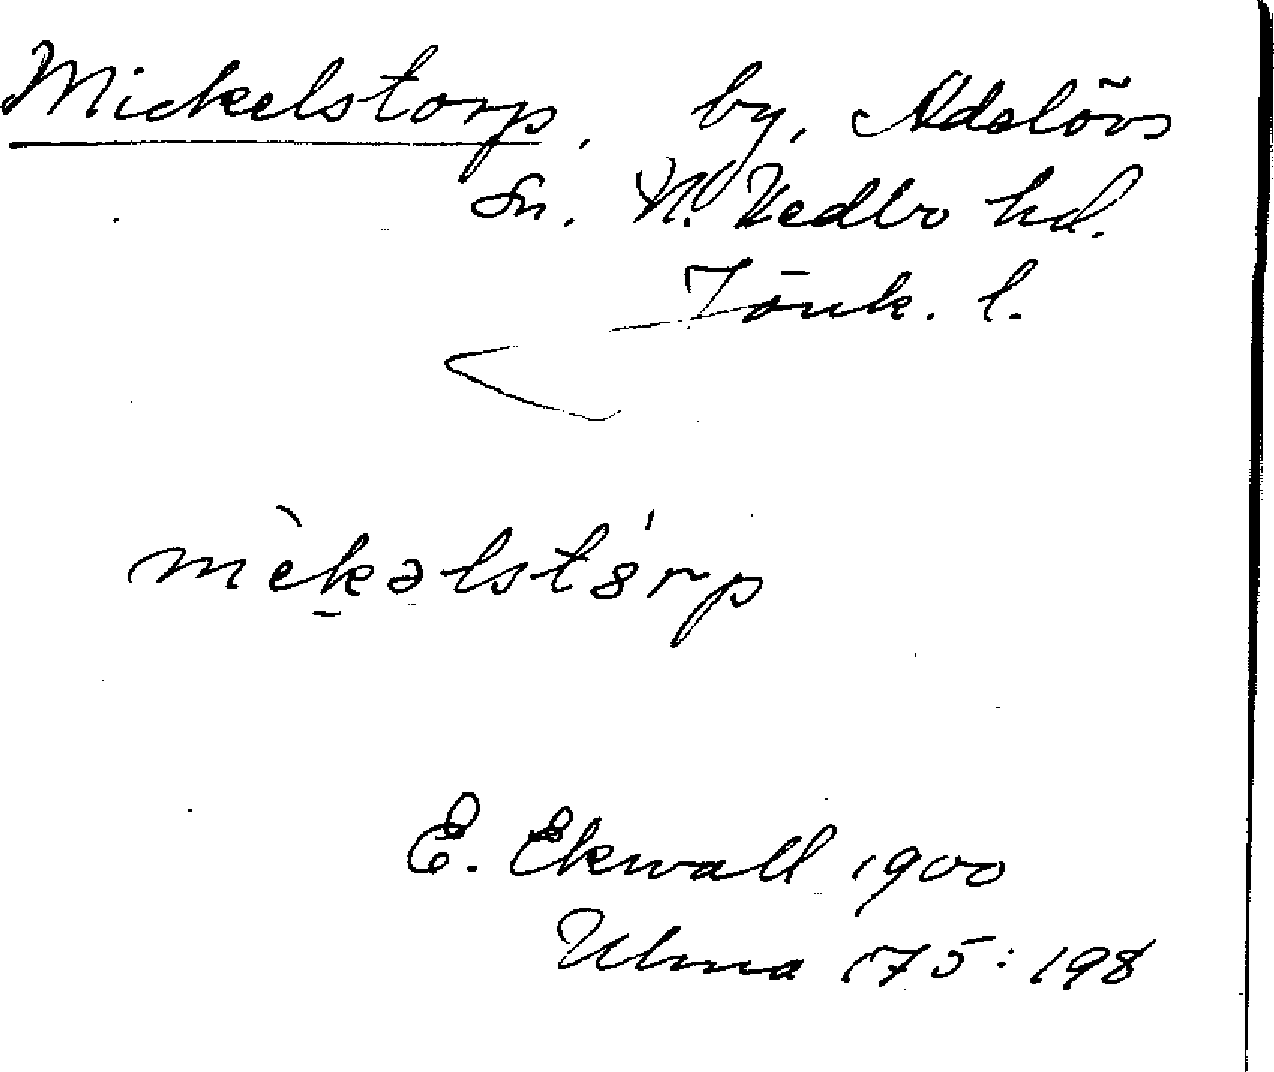 Mickelstorp, by, Adelövs
Sn. N. Vedbo hd.
Jönk. l.
mèkəlstó̤rp
E. Ekwall 1900
Ulma 175:198